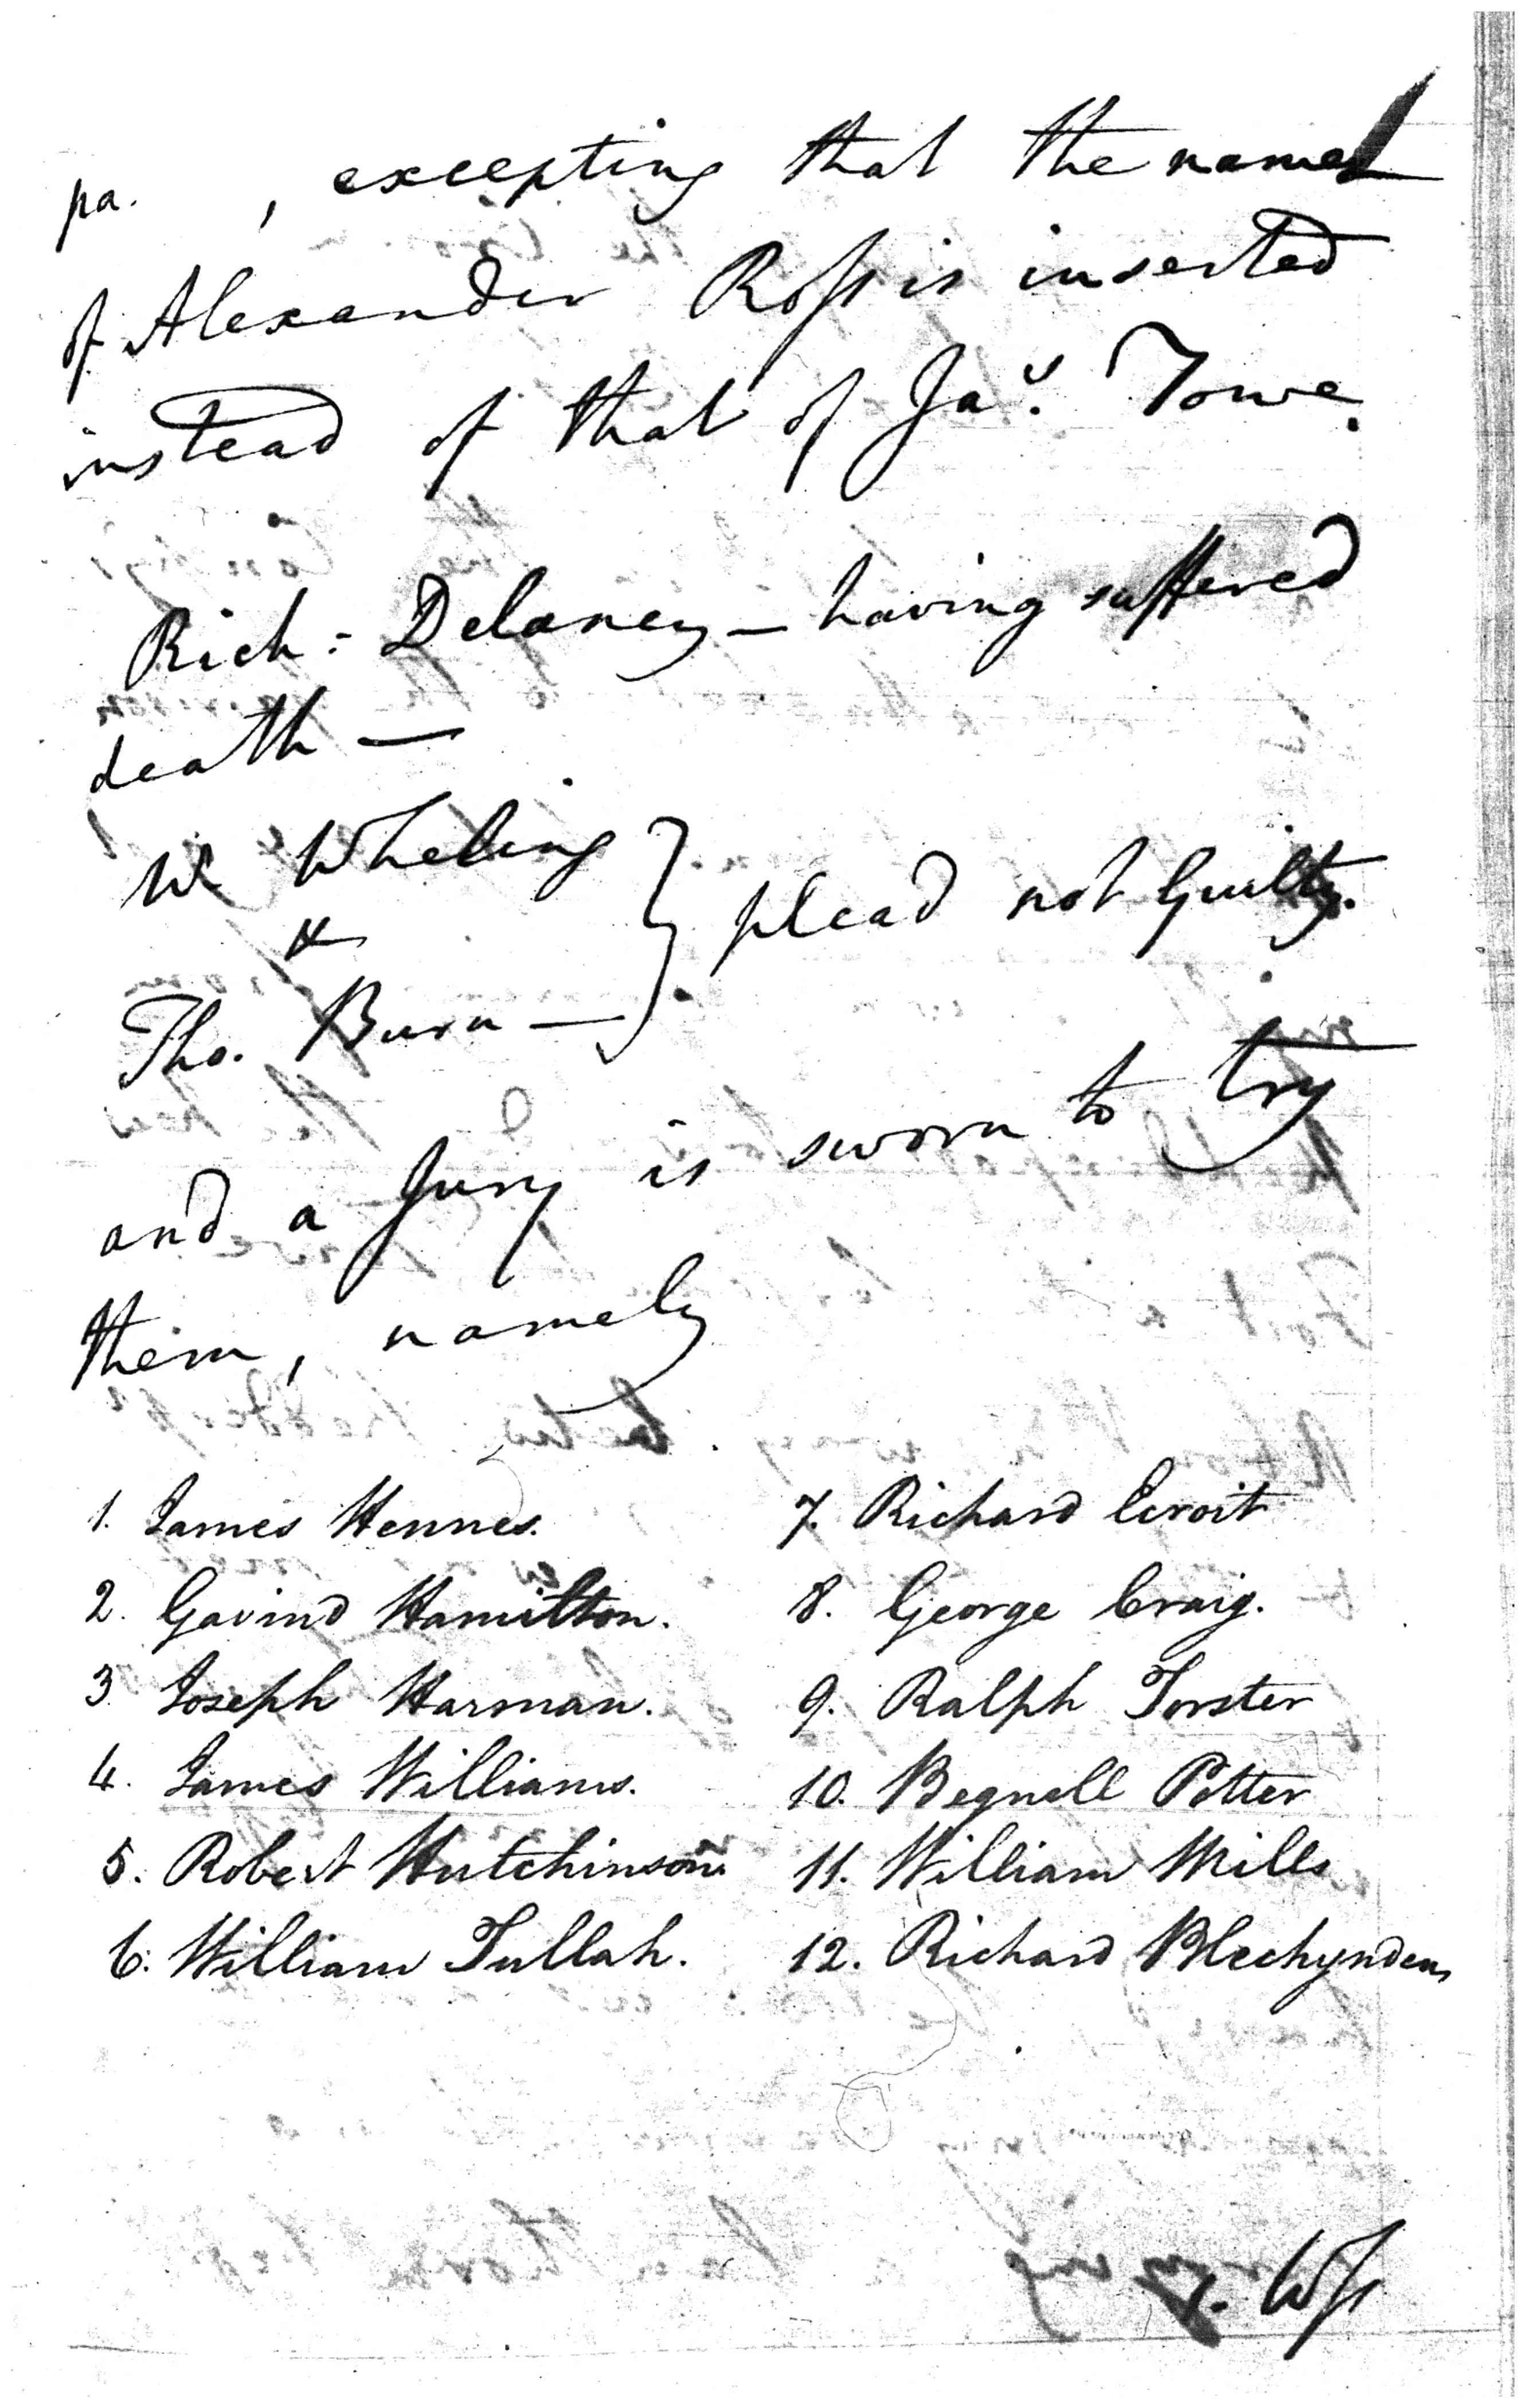 pa. , excepting that the name
of Alexander Ross is inserted
instead of that of Jas. Towe.
Rich: Delaney — having suffered
death —
Wm Wheling
&
Tho. Burn —
plead not Guilty.
and a Jury is sworn to try
them, namely
1. James Hennes.
2. Gavind Hamilton.
3. Joseph Harman.
4. James Williams.
5. Robert Hutchinson.
6. William Tullah.
7. Richard Ecroit
8. George Craig.
9. Ralph Forster
10. Begnell Potter
11. William Mills
12. Richard Blechynden